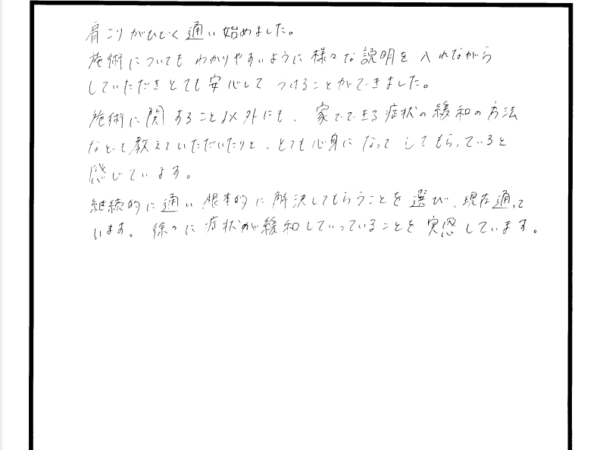 肩こりがひどく通い始めました。
施術についてもわかりやすいように様々な説明を入れながら
していただきとても安心してうけることができました。
施術に関すること以外にも、家でできる症状の緩和の方法
なども教えていただいたりと、とても心身になってしてもらっていると
感じています。
継続的に通い根本的に解決してもらうことを選び、現在通って
います。徐々に症状が緩和していっていることを実感しています。